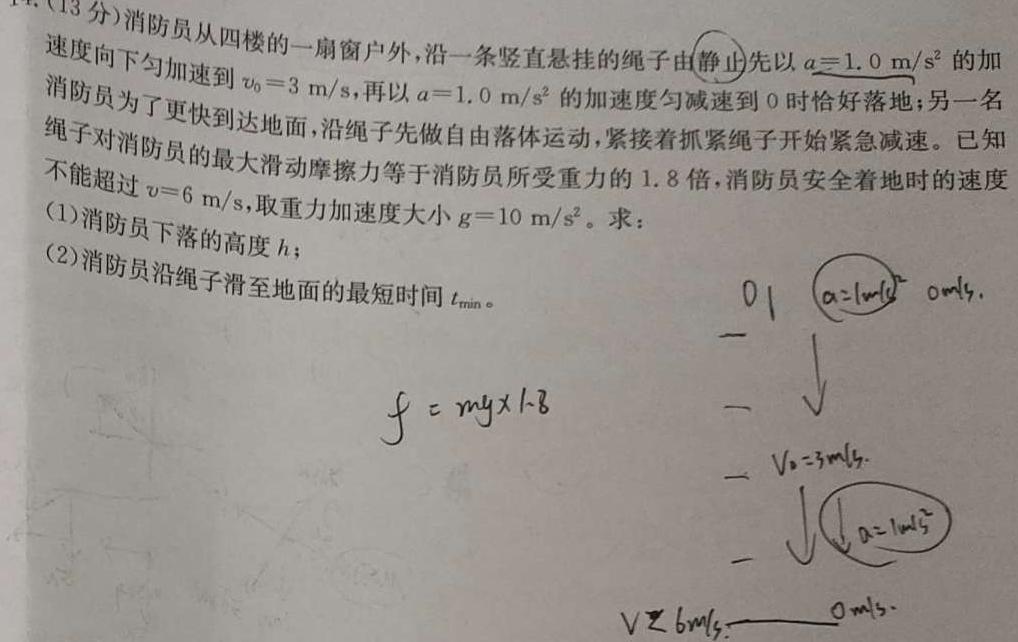 14.(13分)消防员从四楼的一扇窗户外,沿一条竖直悬挂的绳子由静止先以 a=1.0 m/s² 的加
速度向下匀加速到 v₀=3 m/s,再以 a=1.0 m/s² 的加速度匀减速到 0 时恰好落地;另一名
消防员为了更快到达地面,沿绳子先做自由落体运动,紧接着抓紧绳子开始紧急减速。已知
绳子对消防员的最大滑动摩擦力等于消防员所受重力的 1.8 倍,消防员安全着地时的速度
不能超过 v=6 m/s,取重力加速度大小 g=10 m/s²。求:
(1)消防员下落的高度 h;
(2)消防员沿绳子滑至地面的最短时间 tmin。
a=1m/s² 0m/s.
f = mg×1.8
V₀=3m/s.
a=1m/s²
6m/s. 0m/s.